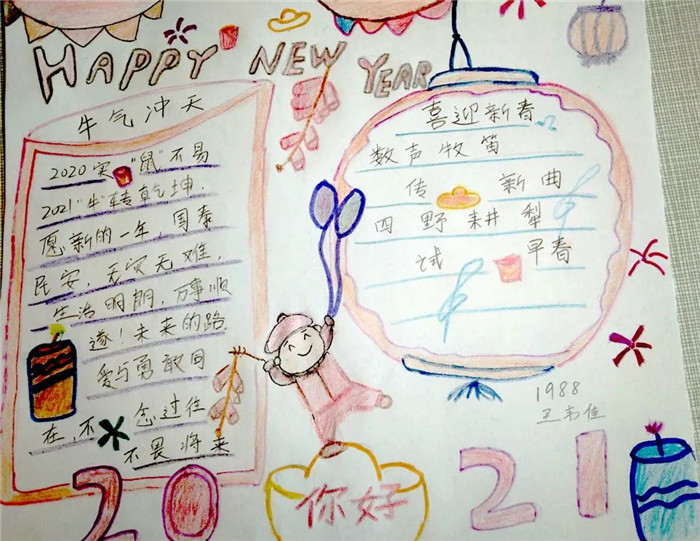 HAPPY NEW YEAR
牛气冲天
2020实"鼠"不易
2021"牛"转乾坤.
愿新的一年,国泰
民安,无灾无难,
生活明朗,万事顺
遂!未来的路,
爱与勇敢同
在,不念过往
不畏将来
喜迎新春
数声牧笛
传新曲
四野耕犁
试早春
1988
20你好21